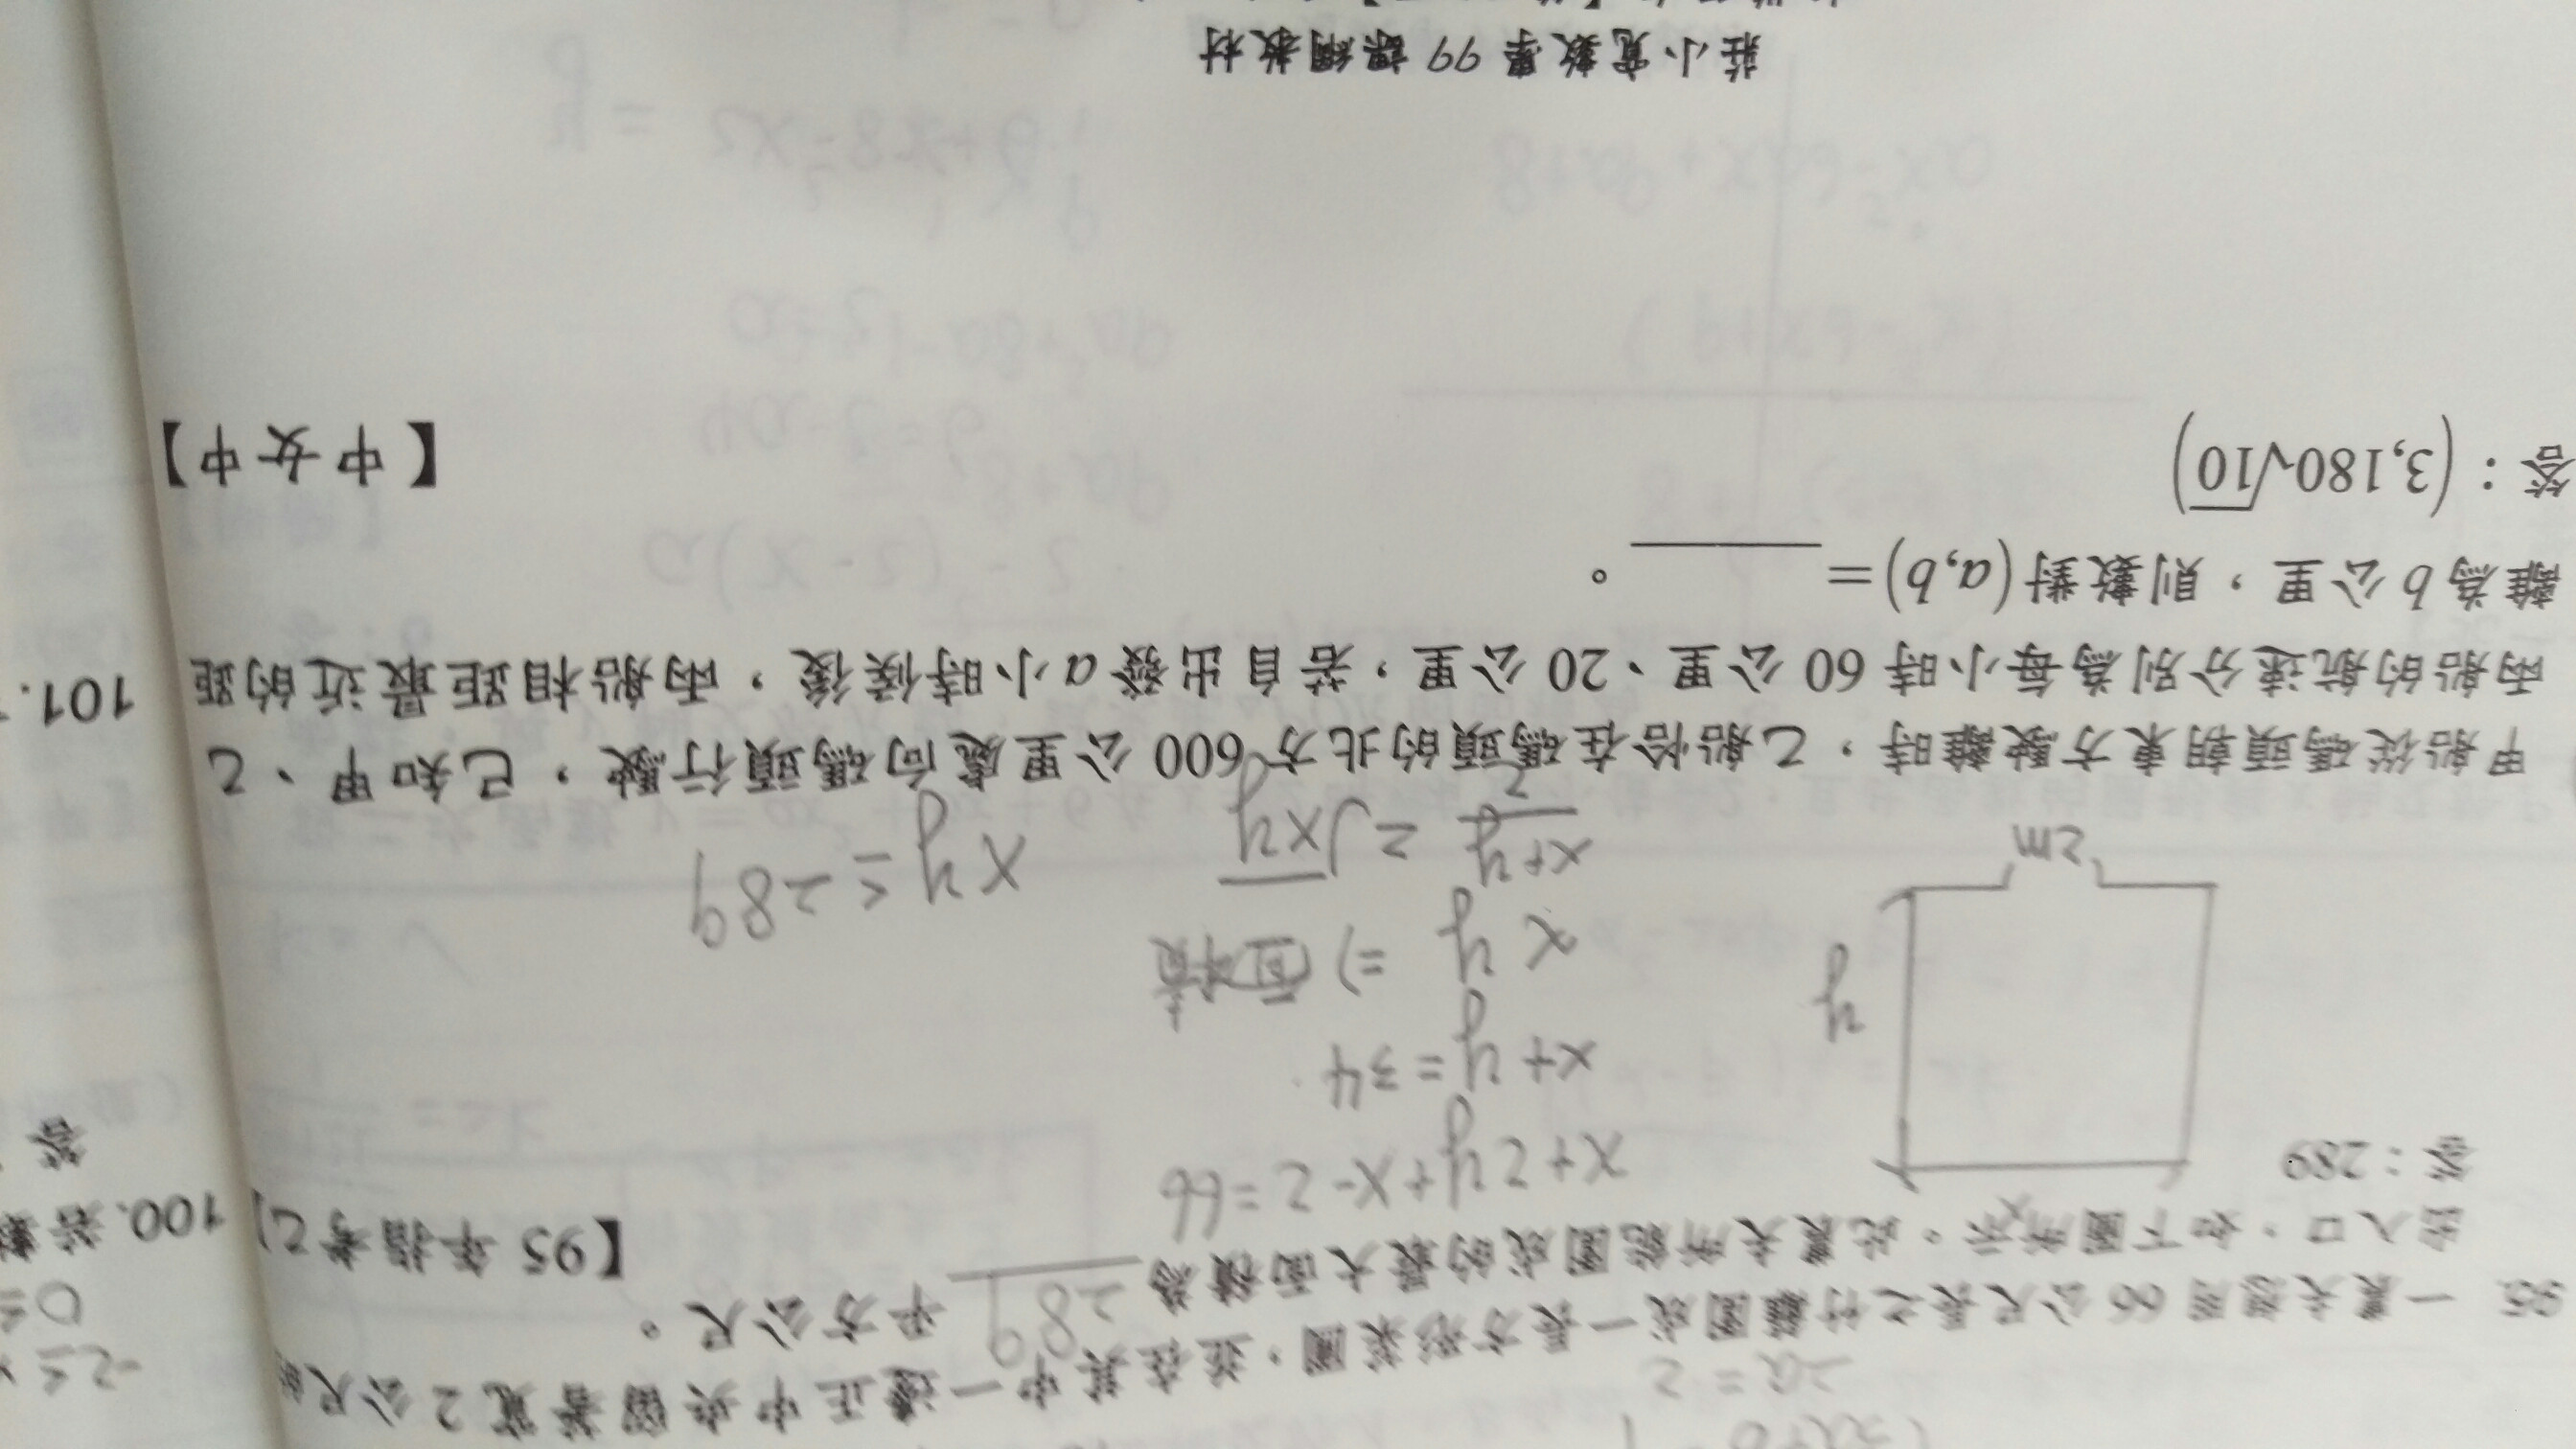 2a=2
95. 一農夫想用 66 公尺長之竹籬圍成一長方形菜圃，並在其中一邊正中央留著寬 2 公尺的
出入口，如下圖所示。此農夫所能圍成的最大面積為 289 平方公尺。 【95 年指考乙】
答：289
x
y
2m
x+2y+x-2=66
x+y=34
xy ⇒ 面積
x+y/2 ≥ √xy
xy ≤ 289
甲船從碼頭朝東方駛離時，乙船恰在碼頭的北方 600 公里處向碼頭行駛，已知甲、乙
兩船的航速分別為每小時 60 公里、20 公里，若自出發 a 小時候後，兩船相距最近的距
離為 b 公里，則數對 (a,b) = ______。
答：(3,180√10) 【中女中】
莊小寬數學 99 課綱教材
-2≤
0≤
100. 若
答
101.